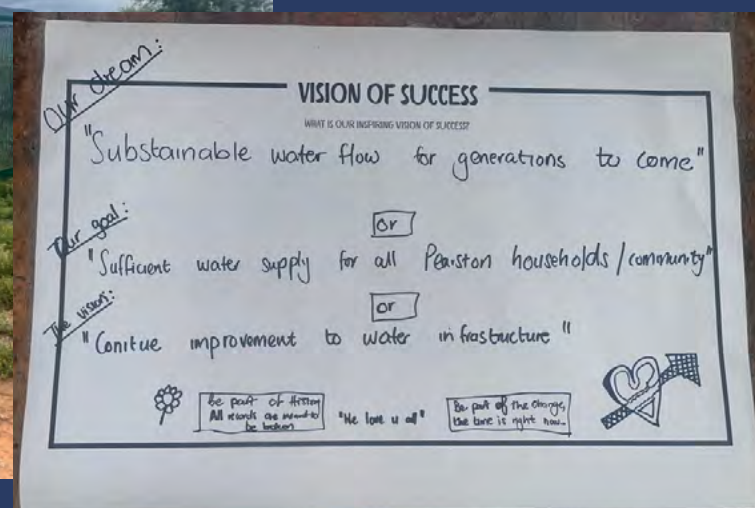 Our dream:
VISION OF SUCCESS
WHAT IS OUR INSPIRING VISION OF SUCCESS?
"Substainable water flow for generations to come"
Our goal:
or
"Sufficient water supply for all Pearston households/community"
The vision:
or
"Conitue improvement to water infrastucture"
Be part of History
All records are meant to
be broken
"We love u all"
Be part of the change,
the time is right now.